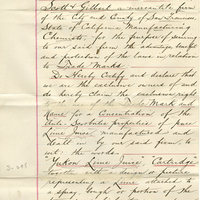 Scott & Gilbert a mercantile firm
of the City and County of San Francisco
State of California Manufacturing
Chemists, for the purpose of securing
to our said firm the advantage, benefit
and protection of the laws in relation
to Trade Marks
Do Hereby Certify and declare that
we are the exclusive owners of and
do hereby claim the exclusive right
to the use of the Trade Mark and
Name for a Concentration of the
Anti-Scorbutic properties of pure
Lime Juice, manufactured and
dealt in by our said firm, to
wit: the words
"Yukon Lime Juice Cartridge"
together with a design or picture
representing a Lime attached to
a spray, bough or portion of the